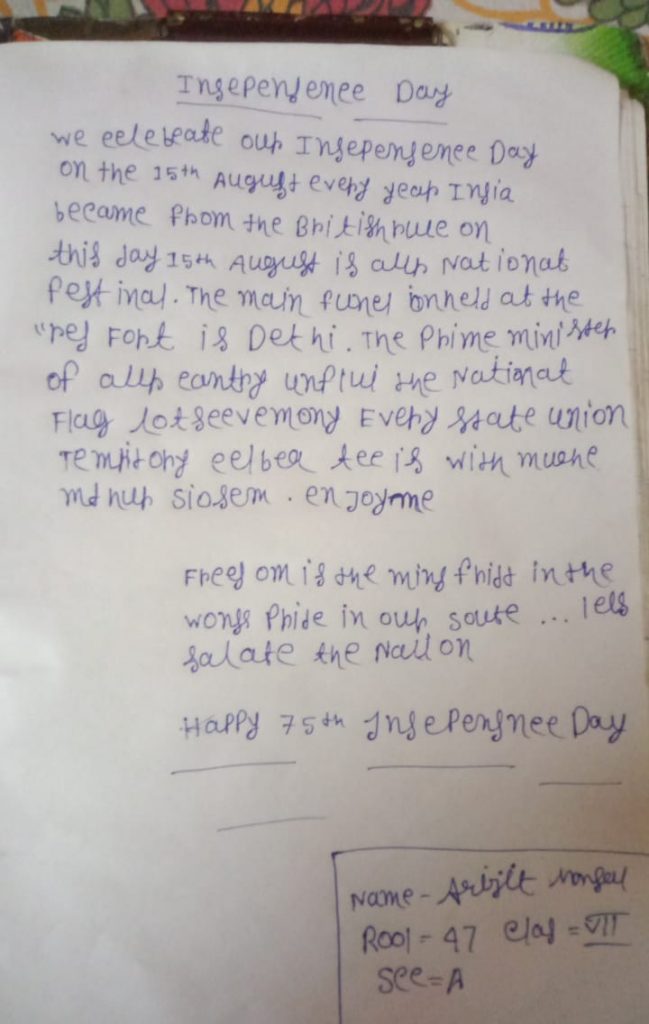 Insepensence Day
we eelebeate oup Insepensence Day
on the 15th August every year Insia
became from the British rule on
this day 15th August is oup National
festinal. The main funel ionneld at the
"res Fort is Dethi. The Prime minister
of oup cantry unflul the National
Flag lotseevemony Every state union
Temritory eelbea tee is with muche
mdnup siosem. enjoyme
Freesom is the mins frist in the
wonss Pride in oup soute ... lets
salate the Nallon
Happy 75th Insepensnee Day
Name - Arijit Monsal
Rool = 47 Clas = VII
See = A